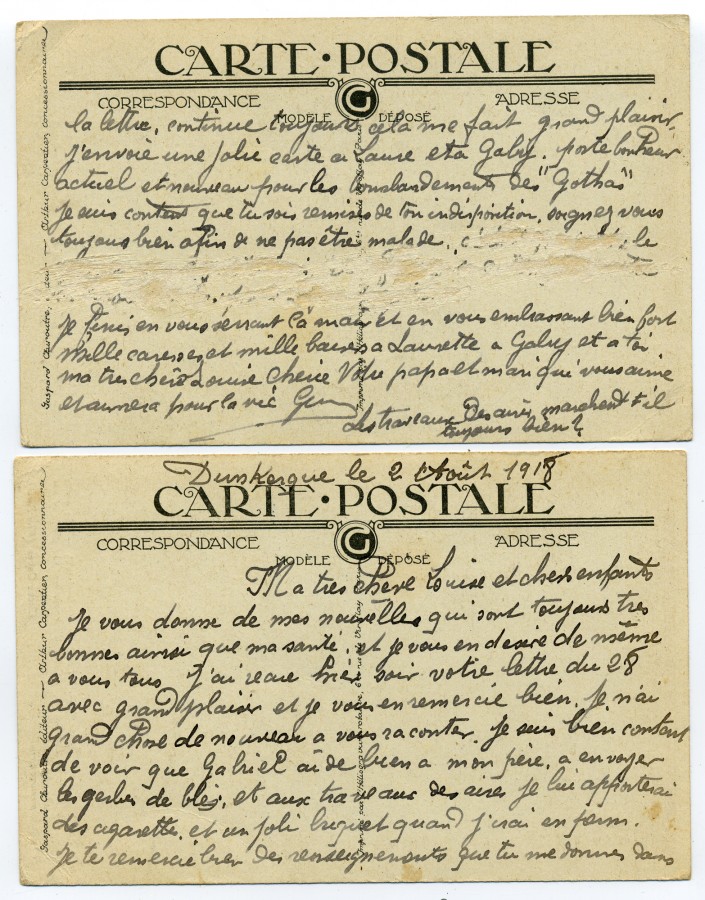 CARTE·POSTALE
CORRESPONDANCE
MODÈLE G DÉPOSÉ
ADRESSE
la lettre, continue toujours celà me fait grand plaisir,
j'envoie une jolie carte a Laure et a Gaby. porte bonheur
actuel et nouveau pour les bombardements des "Gothas"
je suis content que tu sois remise de ton indisposition, soignez vous
toujours bien afin de ne pas être malade, le
je finis en vous serrant la main et en vous embrassant bien fort
Mille caresses et mille baisers a Laurette a Gaby et a toi
ma tres chère Louise Cherie Votre papa et mari qui vous aime
et aimera pour la vie
Les travaux Des aires marchent t-il
toujours bien?
Gaspard Auroutre, éditeur — Arthur Carpentier concessionnaire
Dunkerque le 2 Août 1918
CARTE·POSTALE
CORRESPONDANCE
MODÈLE G DÉPOSÉ
ADRESSE
Ma tres Chere Louise et chers enfants
Je vous donne de mes nouvelles qui sont toujours tres
bonnes ainsi que ma santé. et je vous en desire de même
a vous tous J'ai recue hier soir votre lettre du 28
avec grand plaisir et je vous en remercie bien. Je n'ai
grand chose de nouveau a vous raconter. Je suis bien content
de voir que Gabriel aide bien a mon père, a envoyer
les gerbes de blés, et aux travaux des aires je lui apporterai
des cigarettes, et un joli briquet quand j'irai en perm.
Je te remercie bien des renseignements que tu me donnes dans
Gaspard Auroutre, éditeur — Arthur Carpentier concessionnaire